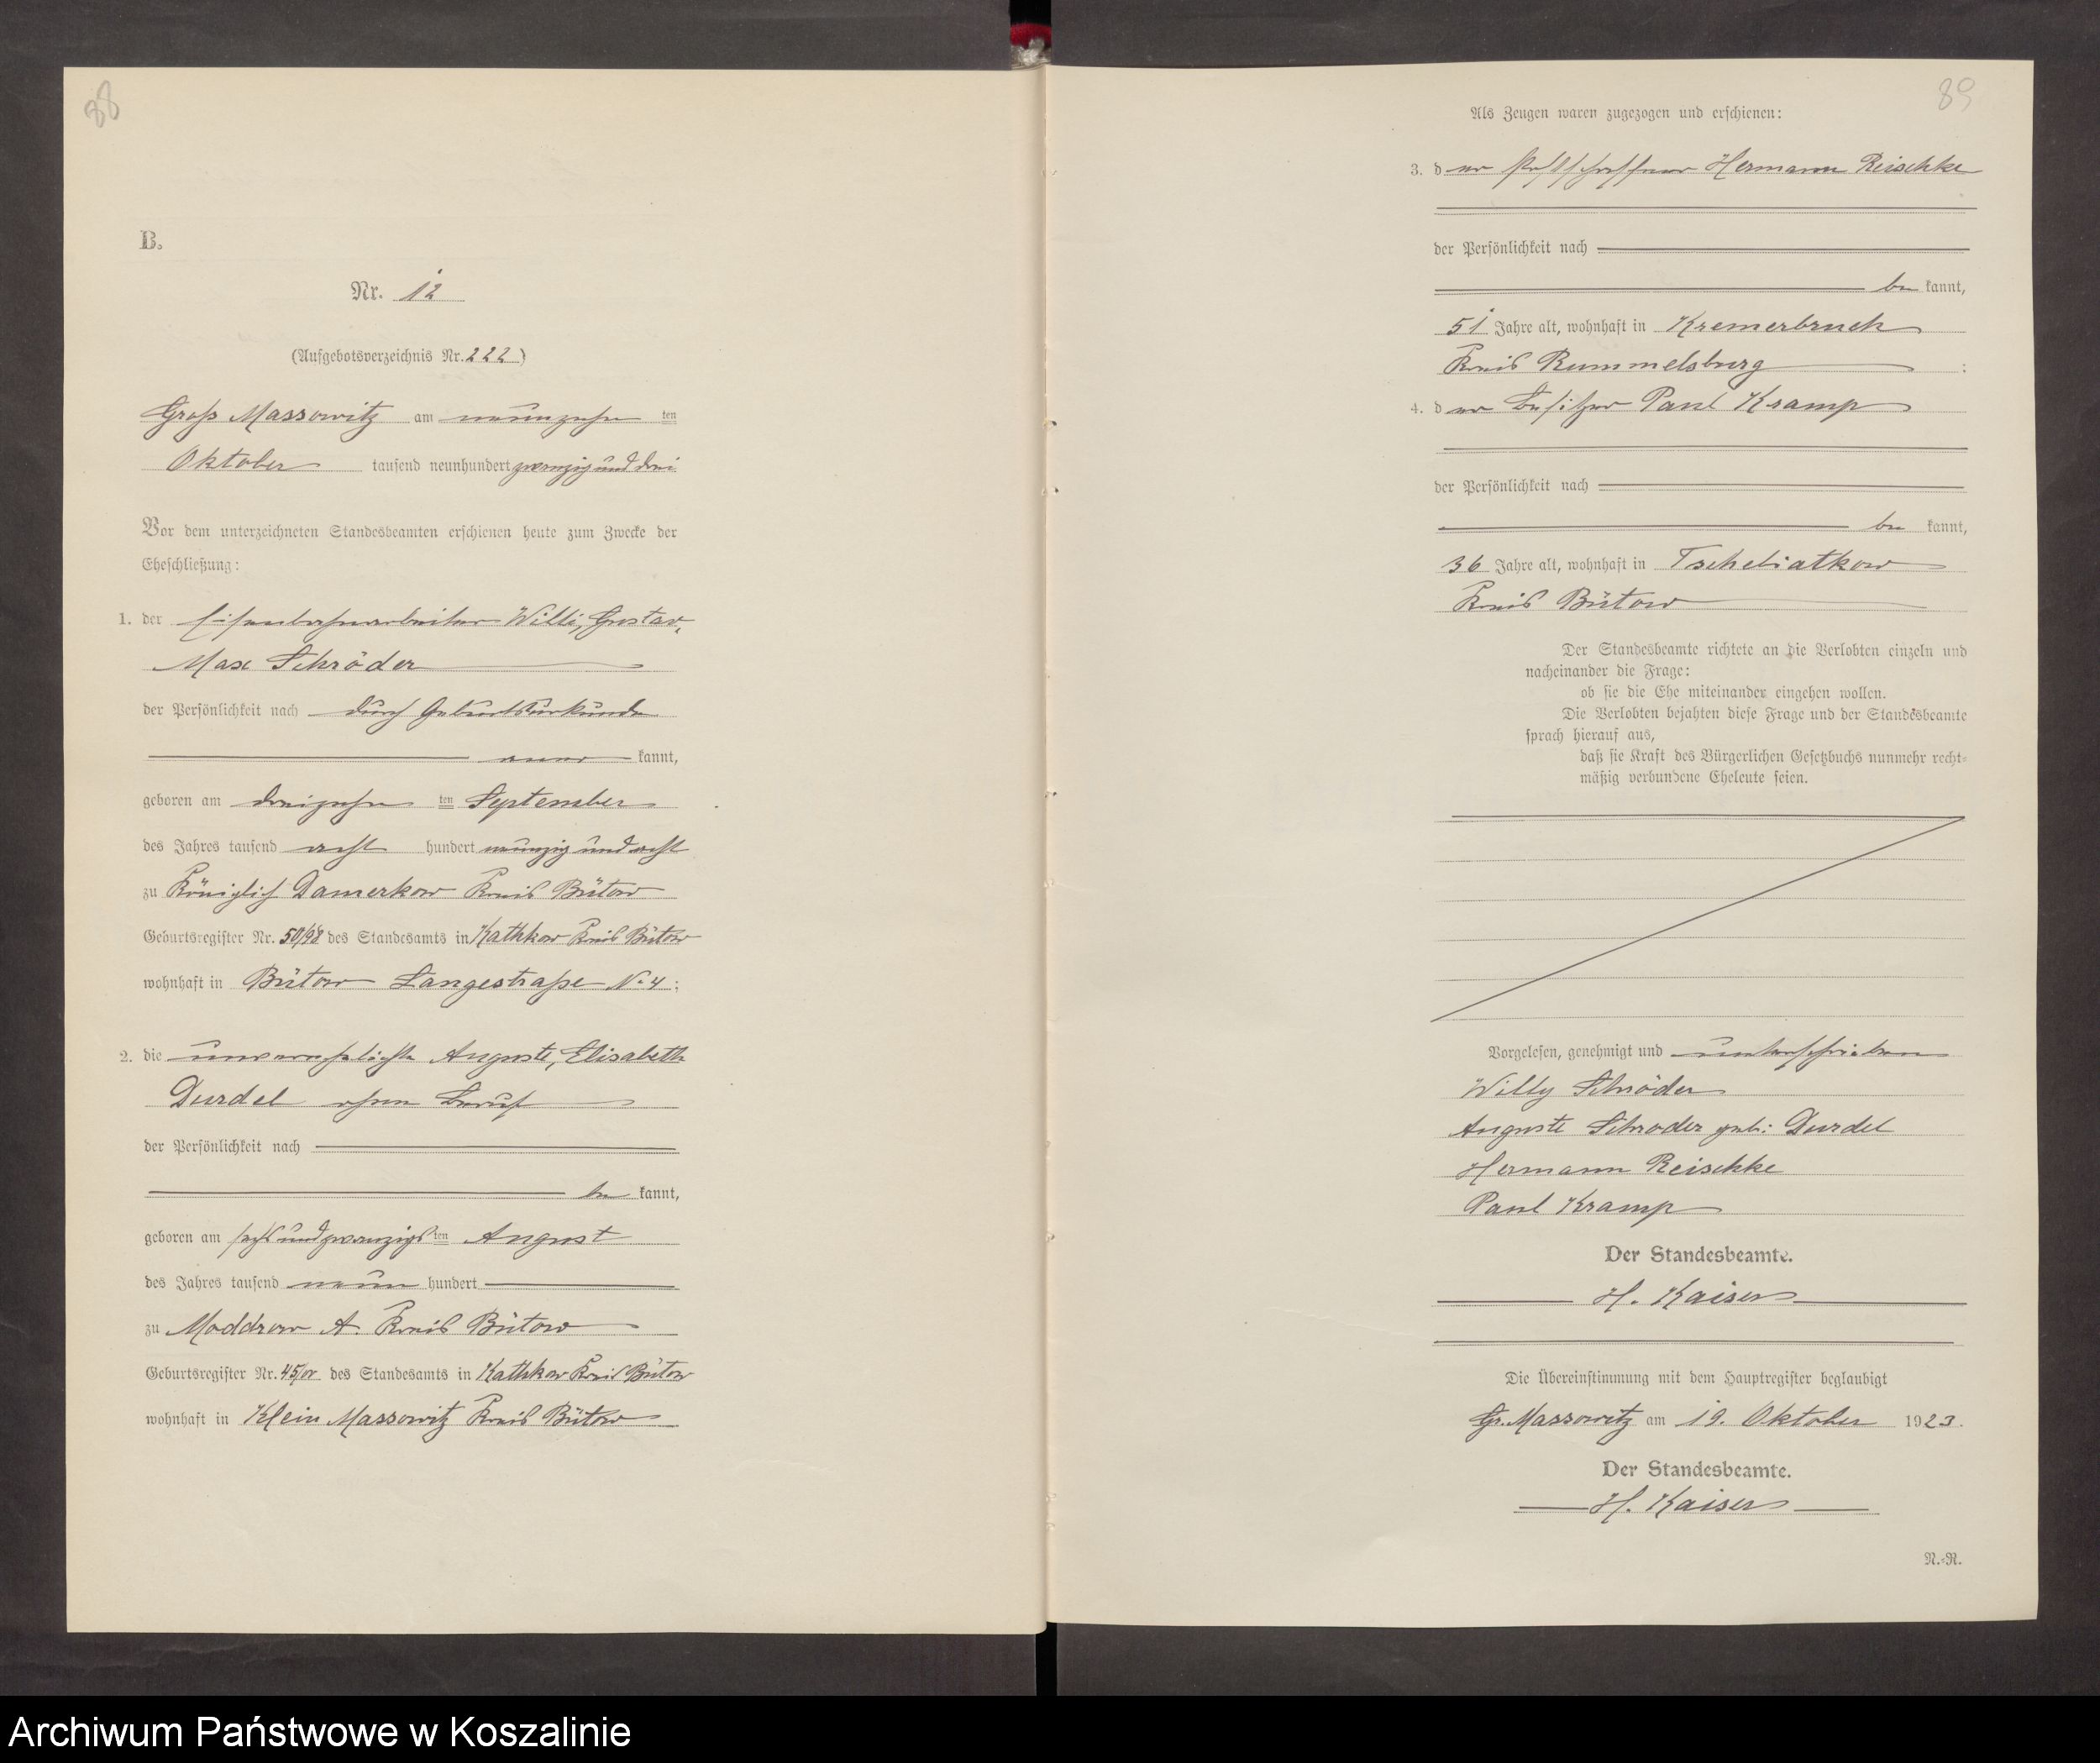 88
B.
Nr. 12
(Aufgebotsverzeichnis Nr. 222)
Groß Massowitz am neunzehn ten
Oktober tausend neunhundert zwanzig und drei
Vor dem unterzeichneten Standesbeamten erschienen heute zum Zwecke der
Eheschließung:
1. der Eisenbahnarbeiter Willi, Gustav,
Max Schröder
der Persönlichkeit nach durch Geburtsurkunde
aner kannt,
geboren am dreizehn ten September
des Jahres tausend acht hundert neunzig und acht
zu Königlich Damerkow Kreis Bütow
Geburtsregister Nr. 50/98 des Standesamts in Kathkow Kreis Bütow
wohnhaft in Bütow Langestraße N. 4 ;
2. die unverehelichte Auguste, Elisabeth
Durdel ohne Beruf
der Persönlichkeit nach
be kannt,
geboren am sechs und zwanzigs ten August
des Jahres tausend neun hundert
zu Moddrow A. Kreis Bütow
Geburtsregister Nr. 45/00 des Standesamts in Kathkow Kreis Bütow
wohnhaft in Klein Massowitz Kreis Bütow
89
Als Zeugen waren zugezogen und erschienen:
3. der Postschaffner Hermann Reischke
der Persönlichkeit nach
be kannt,
51 Jahre alt, wohnhaft in Kremerbruch
Kreis Rummelsburg ;
4. der Besitzer Paul Kramp
der Persönlichkeit nach
be kannt,
36 Jahre alt, wohnhaft in Tschebiatkow
Kreis Bütow
Der Standesbeamte richtete an die Verlobten einzeln und
nacheinander die Frage:
ob sie die Ehe miteinander eingehen wollen.
Die Verlobten bejahten diese Frage und der Standesbeamte
sprach hierauf aus,
daß sie Kraft des Bürgerlichen Gesetzbuchs nunmehr recht-
mäßig verbundene Eheleute seien.
Vorgelesen, genehmigt und unterschrieben
Willy Schröder
Auguste Schröder geb: Durdel
Hermann Reischke
Paul Kramp
Der Standesbeamte.
H. Kaiser
Die Übereinstimmung mit dem Hauptregister beglaubigt
Gr. Massowitz am 19. Oktober 1923.
Der Standesbeamte.
H. Kaiser
N.-R.
Archiwum Państwowe w Koszalinie